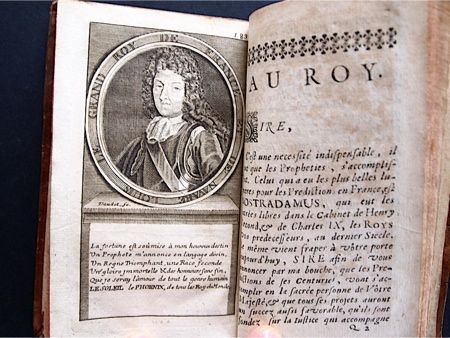 LOUIS LE GRAND ROY DE FRANCE ET DE NAVARRE
La fortune est soûmise à mon heureux destin
Un Prophete m'annonce en langage divin,
Un Regne Triomphant, une Race feconde
Une gloire immortelle & des honneurs sans fin,
Que je seray l'amour de tout le genre humain
LE SOLEIL le PHOENIX, de tous les Roys du Monde,
AU ROY.
SIRE,
C'est une necessité indispensable, il
que les Propheties, s'accomplis-
Celui qui a eu les plus belles lu-
eres pour les Prediction en France, est
OSTRADAMUS, que eut les
trées libres dans le Cabinet de Henry
cond, & de Charles IX, les ROYS
os predecesseurs, au dernier Siecle.
même vient fraper à vôtre porte
ujourd'hui, SIRE afin de vous
noncer par ma bouche, que les Pre-
ctions de ses Centuries, vont s'ac-
omplir en la sacrée personne de Vôtre
Majesté, & que tous ses projets auront
un succez aussi favorable, qu'ils sont
fondez sur la Justice qui accompagne
Q 2